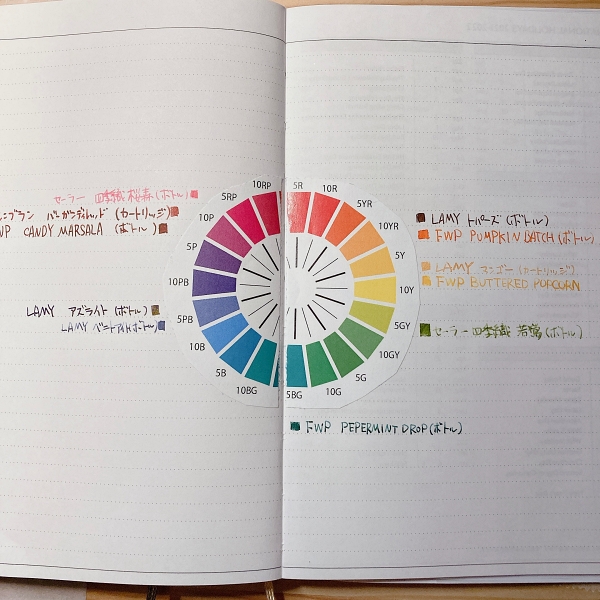 セーラー 四季織 桜森 (ボトル)
ンブラン バーガンディレッド (カートリッジ)
WP CANDY MARSALA (ボトル)
LAMY アズライト (ボトル)
LAMY ベニトアイト(ボトル)
LAMY トパーズ (ボトル)
FWP PUMPKIN PATCH (ボトル)
LAMY マンゴー (カートリッジ)
FWP BUTTERED POPCORN
セーラー 四季織 若鶯 (ボトル)
FWP PEPERMINT DROP (ボトル)
5R
10R
5YR
10YR
5Y
10Y
5GY
10GY
5G
10G
5BG
10BG
5B
10B
5PB
10PB
5P
10P
5RP
10RP